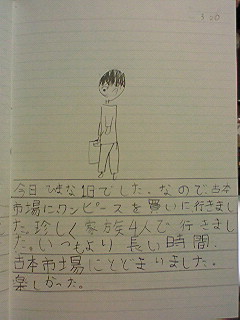 3.20
今日ひまな1日でした。なので、古本
市場にワンピースを買いに行きまし
た。珍しく家族4人で行きまし
た。いつもより長い時間、
古本市場にとどまりました。
楽しかった。